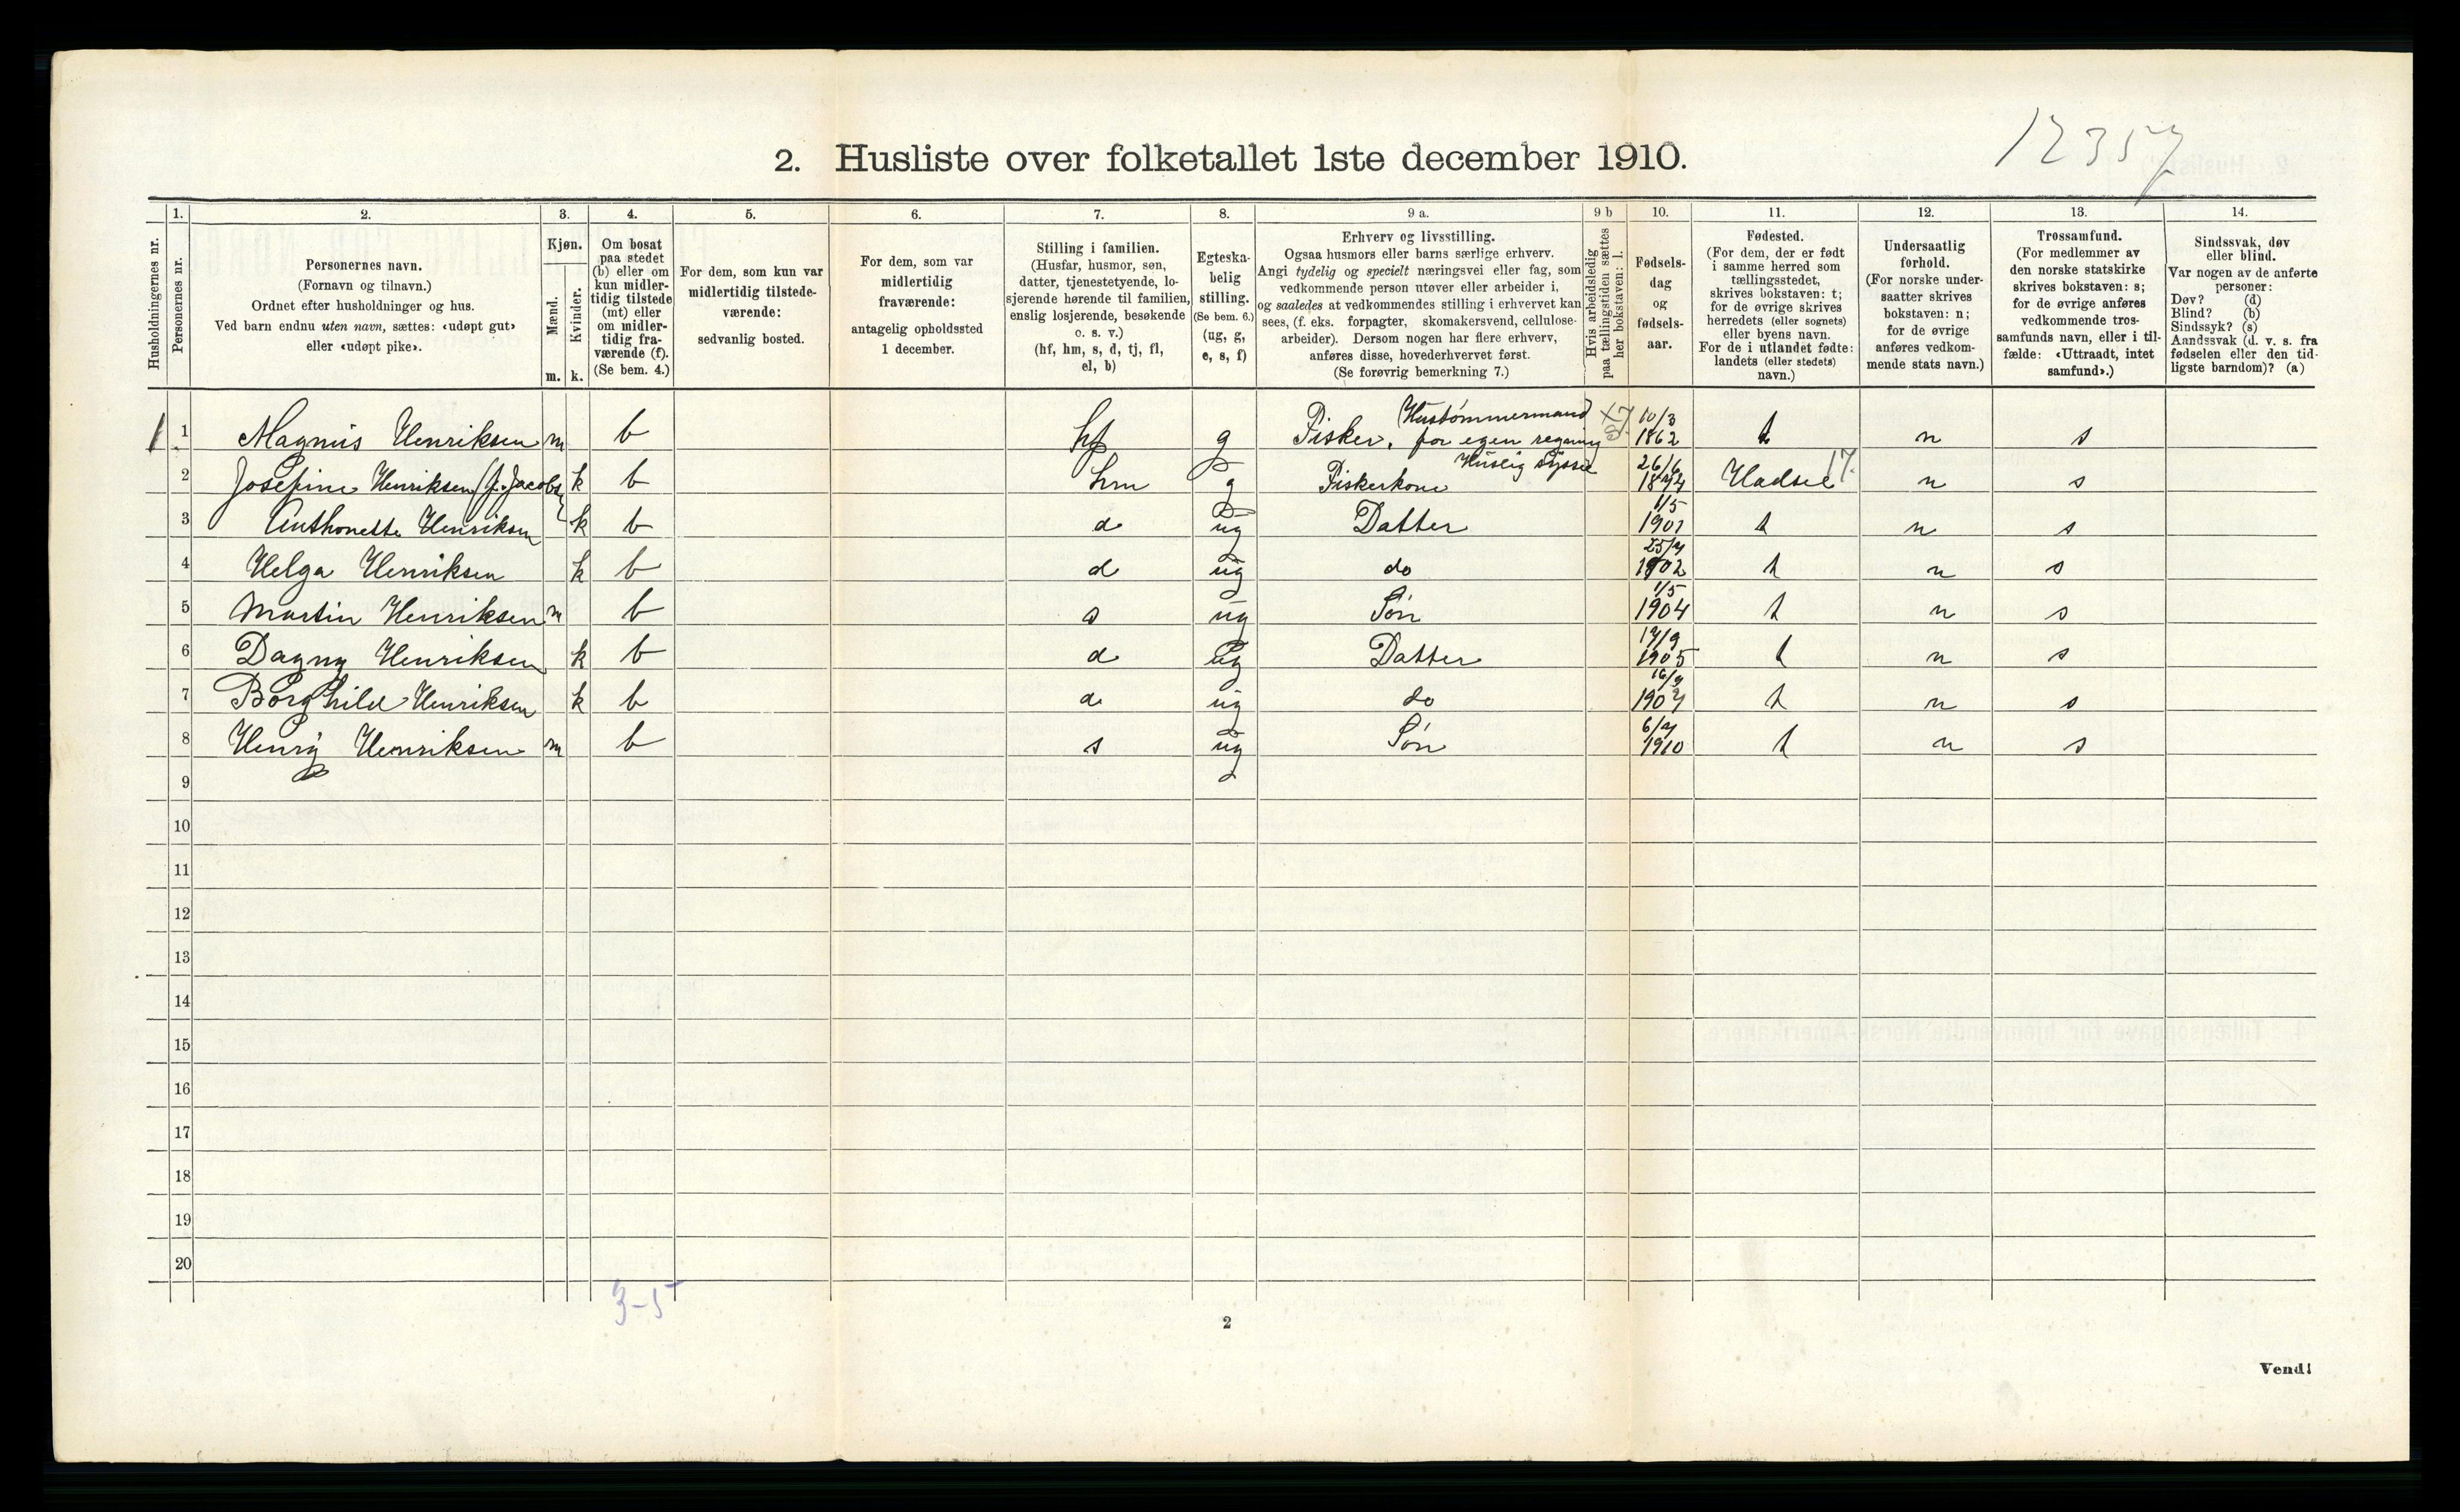 12357
2. Husliste over folketallet 1ste december 1910.
Husholdningernes nr.
1. Personernes nr.
2. Personernes navn. (Fornavn og tilnavn.) Ordnet efter husholdninger og hus. Ved barn endnu uten navn, sættes: «udøpt gut» eller «udøpt pike».
3. Kjøn. Mænd. m. Kvinder. k.
4. Om bosat paa stedet (b) eller om kun midlertidig tilstede (mt) eller om midlertidig fraværende (f). (Se bem. 4.)
5. For dem, som kun var midlertidig tilstedeværende: sedvanlig bosted.
6. For dem, som var midlertidig fraværende: antagelig opholdssted 1 december.
7. Stilling i familien. (Husfar, husmor, søn, datter, tjenestetyende, losjerende hørende til familien, enslig losjerende, besøkende o. s. v.) (hf, hm, s, d, tj, fl, el, b)
8. Egteskabelig stilling. (Se bem. 6.) (ug, g, e, s, f)
9 a. Erhverv og livsstilling. Ogsaa husmors eller barns særlige erhverv. Angi tydelig og specielt næringsvei eller fag, som vedkommende person utøver eller arbeider i, og saaledes at vedkommendes stilling i erhvervet kan sees, (f. eks. forpagter, skomakersvend, cellulosearbeider). Dersom nogen har flere erhverv, anføres disse, hovederhvervet først. (Se forøvrig bemerkning 7.)
9 b Hvis arbeidsledig paa tællingstiden sættes her bokstaven: l.
10. Fødselsdag og fødselsaar.
11. Fødested. (For dem, der er født i samme herred som tællingsstedet, skrives bokstaven: t; for de øvrige skrives herredets (eller sognets) eller byens navn. For de i utlandet fødte: landets (eller stedets) navn.)
12. Undersaatlig forhold. (For norske undersaatter skrives bokstaven: n; for de øvrige anføres vedkommende stats navn.)
13. Trossamfund. (For medlemmer av den norske statskirke skrives bokstaven: s; for de øvrige anføres vedkommende trossamfunds navn, eller i tilfælde: «Uttraadt, intet samfund».)
14. Sindssvak, døv eller blind. Var nogen av de anførte personer: Døv? (d) Blind? (b) Sindssyk? (s) Aandssvak (d. v. s. fra fødselen eller den tidligste barndom)? (a)
1 1 Magnus Henriksen m b hf g Fisker, Hustømmermand for egen regning 10/3 1862 t n s
2 Josefine Henriksen (f. Jacobs k b hm g Fiskerkone Huslig syssel 26/6 1874 Hadsel 17. n s
3 Anthonette Henriksen k b d ug Datter 1/5 1901 t n s
4 Helga Henriksen k b d ug do 25/4 1902 t n s
5 Martin Henriksen m b s ug Søn 1/5 1904 t n s
6 Dagny Henriksen k b d ug Datter 17/9 1905 t n s
7 Borghild Henriksen k b d ug do 16/9 1907 t n s
8 Henry Henriksen m b s ug Søn 6/7 1910 t n s
9
10
11
12
13
14
15
16
17
18
19
20
3-5
2
Vend!